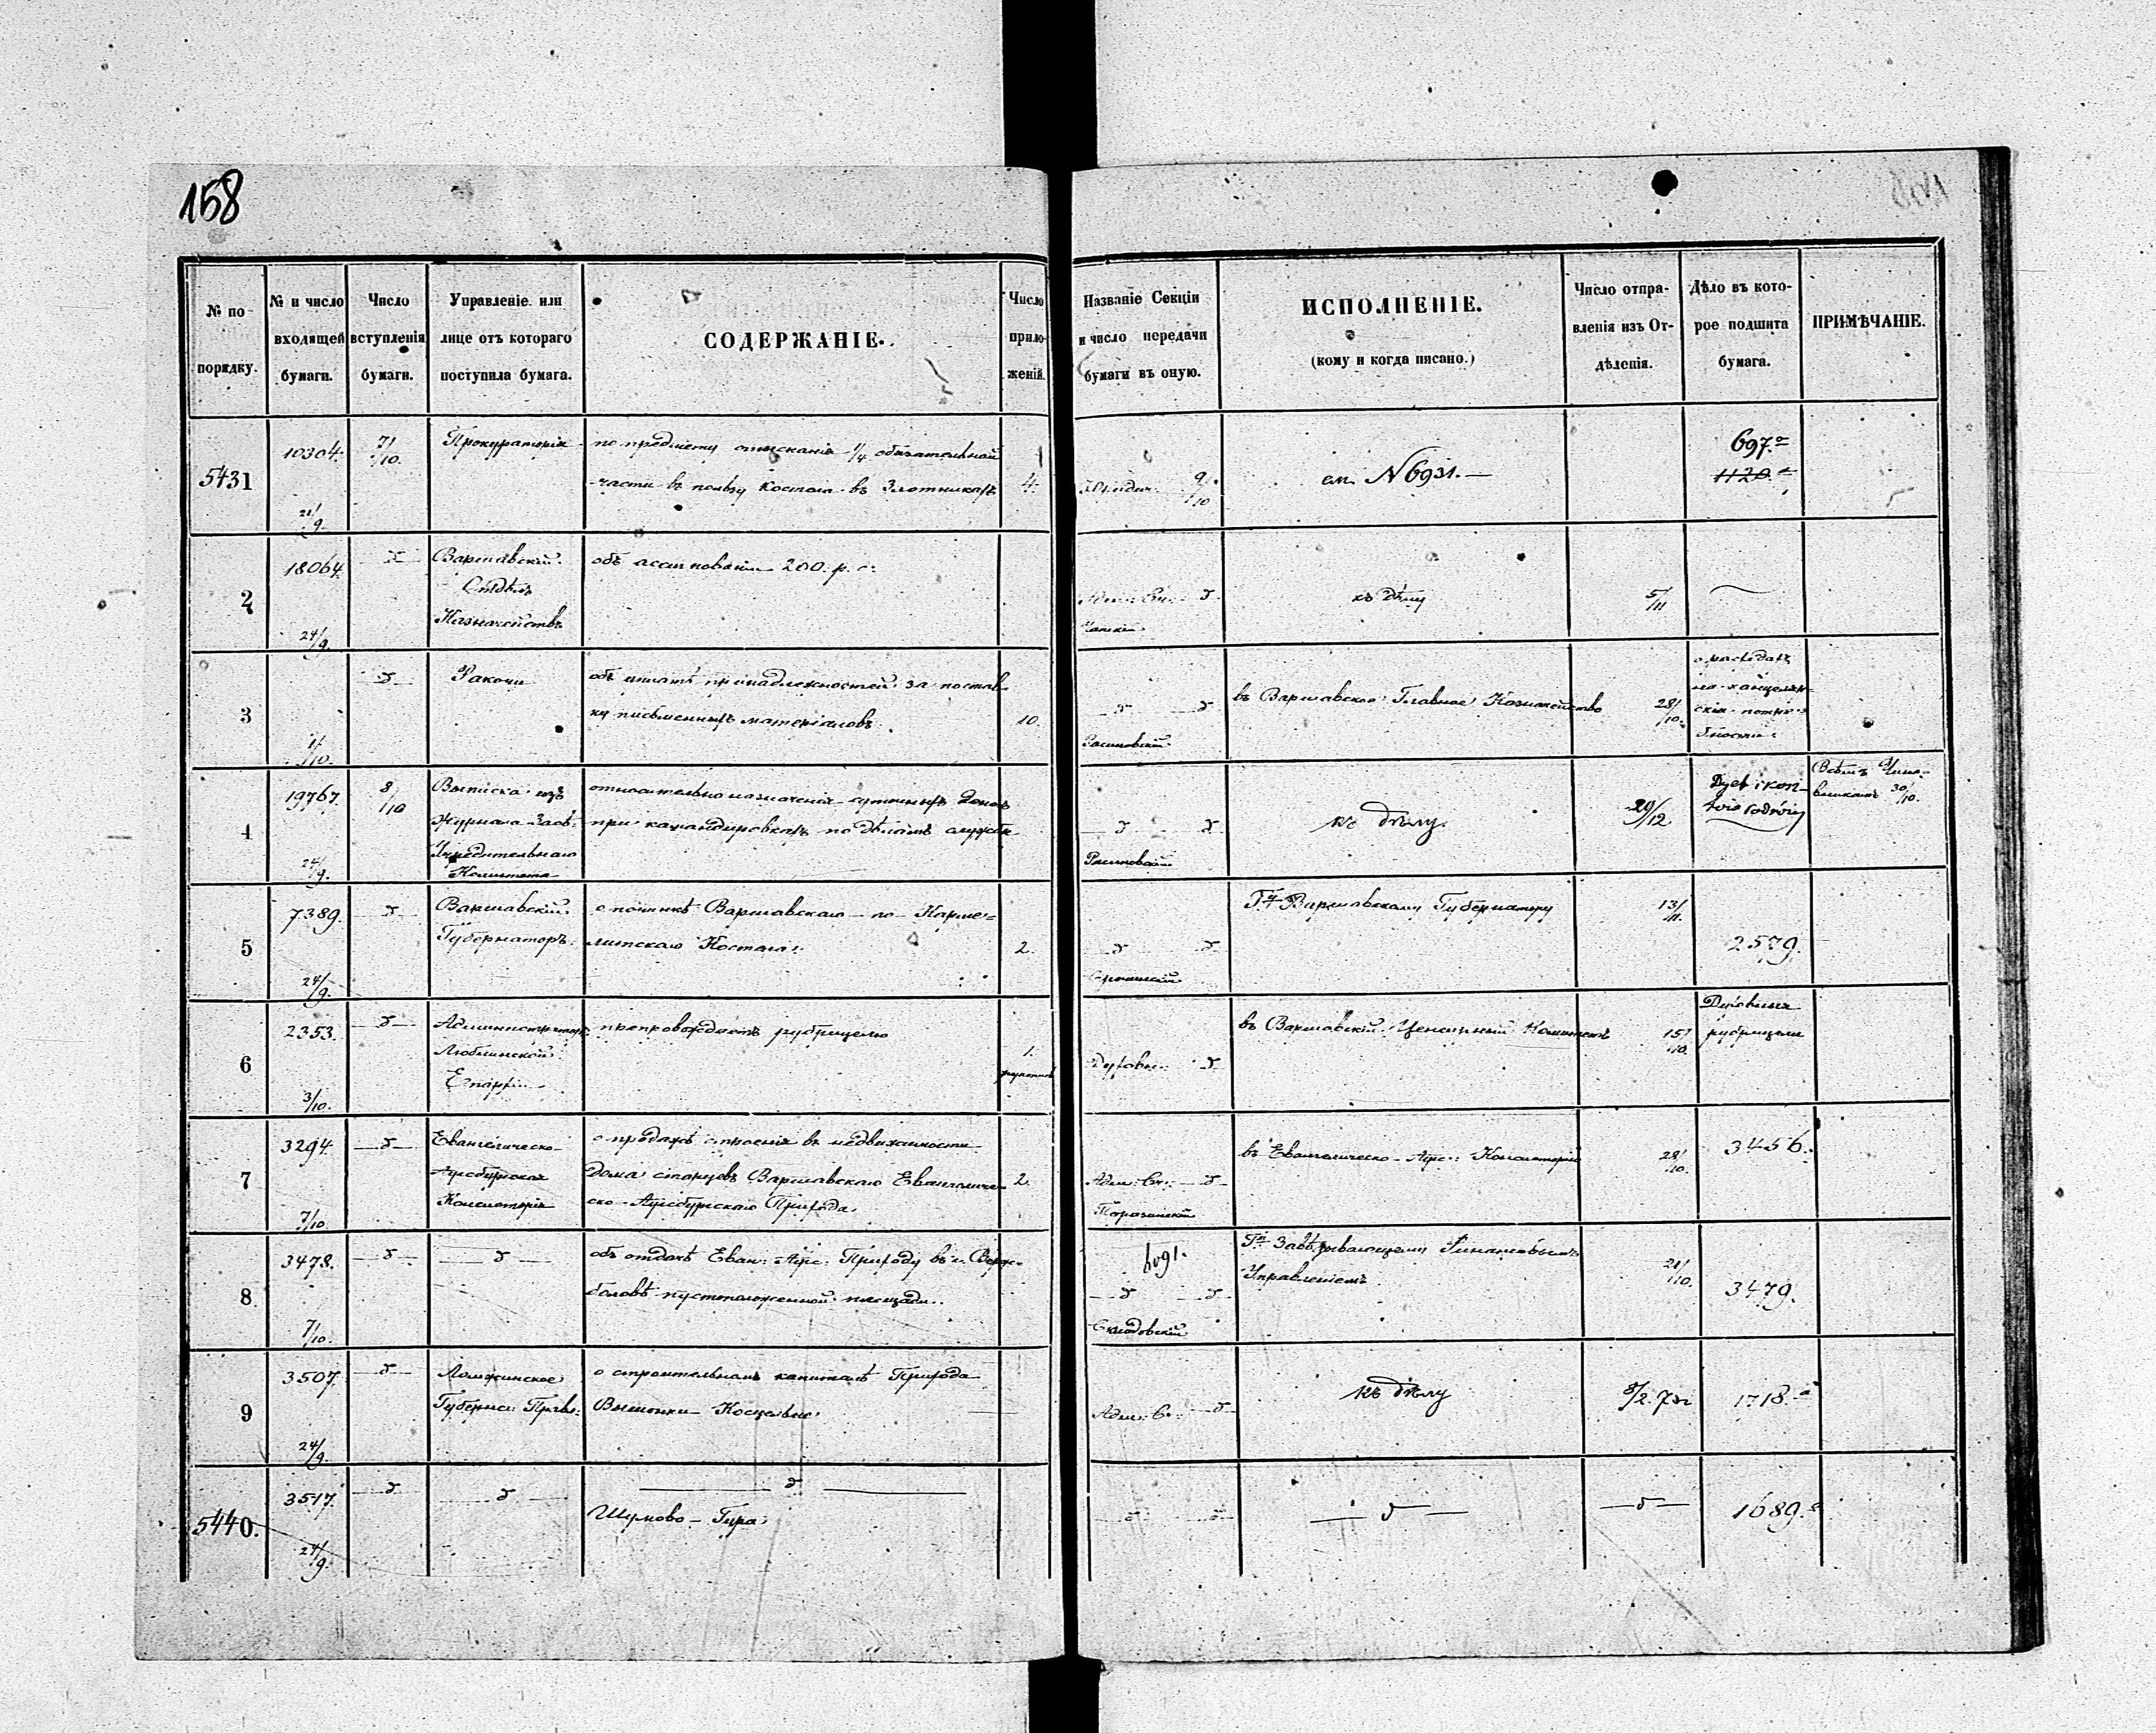 158
№ по порядку.
№ и число входящей бумаги.
Число вступленія бумаги.
Управленіе или лице отъ котораго поступила бумага.
СОДЕРЖАНІЕ.
Число приложеній.
Названіе Секціи и число передачи бумаги въ оную.
ИСПОЛНЕНІЕ.
(кому и когда писано.)
Число отправленія изъ Отдѣленія.
Дѣло въ которое подшита бумага.
ПРИМѢЧАНІЕ.
5431
10304.
21/9.
7/10.
Прокураторія
по предмету отысканія 1/4 обязательной
части въ пользу Костела въ Злотникахъ
4.
9/10
см. № 6931.
697.
1120.
2
18064.
24/9.
Варшавскій
Отдѣлъ
Казначейства
объ ассигнованіи 200. р. с:
къ дѣлу
5/11
3
1/10.
Ракочи
объ уплатѣ принадлежностей за постав
ку письменныхъ матеріаловъ.
10.
въ Варшавское Главное Казначейство
28/10.
о расходахъ
на канцеляр=
скія потре=
бности
4
19767.
24/9.
8/10
Выписка изъ
Журнала Засѣ:
Учредительнаго
Комитета
относительно назначенія суточныхъ денегъ
при командировкахъ по дѣламъ службы
къ дѣлу.
29/12
Всѣмъ Чино-
вникамъ 30/10.
5
7389.
24/9.
Варшавскій
Губернаторъ.
о починкѣ Варшавскаго по Карме=
литскаго Костела.
2.
Гну Варшавскому Губернатору
13/11.
2579.
6
2353.
3/10.
Администраторъ
Люблинской
Епархіи
препровождаетъ рубрицеллю
1.
Духовн:
въ Варшавскій Ценсурный Комитетъ
15/10.
Духовныя
рубрицели
7
3294.
7/10
Евангелическо
Аугсбургская
Консисторія
о продажѣ строенія въ недвижимости
дома старцовъ Варшавскаго Евангеличе-
ско-Аугсбургскаго Прихода.
2.
Адм: Ев:
въ Евангелическо-Аугс: Консисторію
28/10.
3456.
8
3478.
7/10.
объ отдачѣ Еван: Аугс: Приходу въ г. Верж-
боловѣ пустоположенной площади.
Гну Завѣдывающему Финансовымъ
Управленіемъ
21/10.
3479.
9
3507.
24/9.
Ломжинское
Губерн: Правл:
о строительномъ капиталѣ Прихода
Вышонки Косцельне
къ дѣлу
8/2.
1718.
5440.
3517.
24/9.
Шумово-Гура
1689.